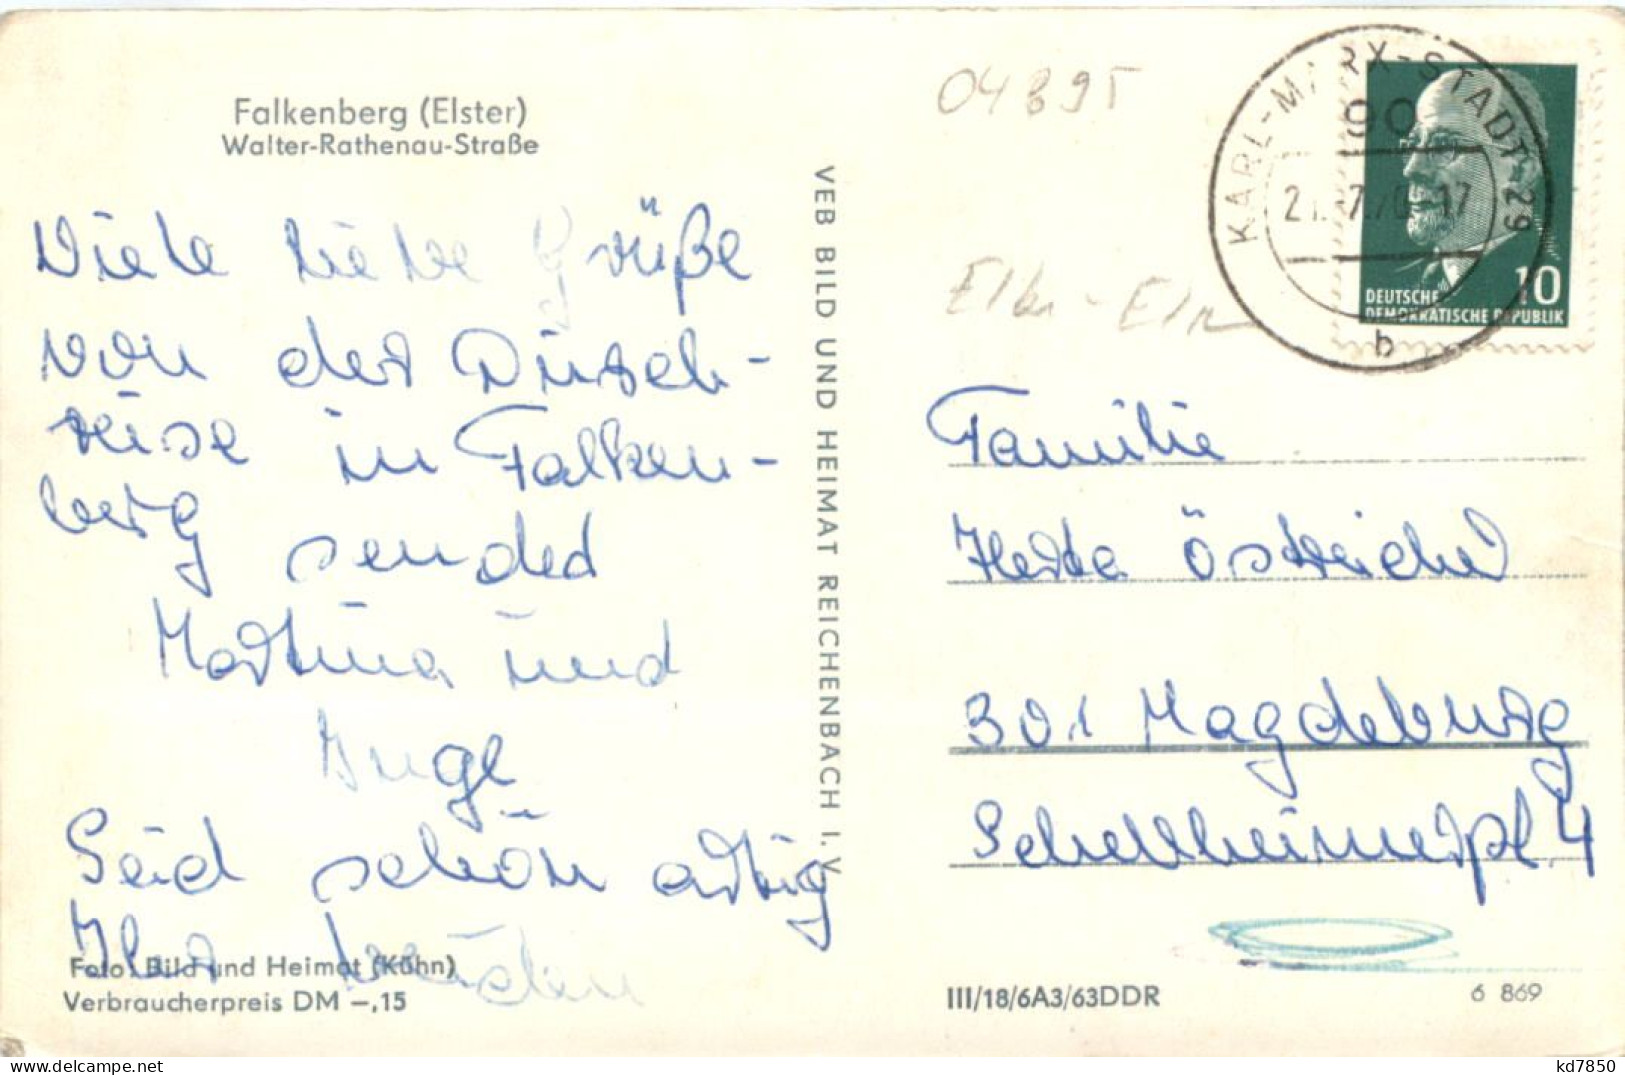 Falkenberg (Elster)
Walter-Rathenau-Straße
Viele liebe Grüße
von der Durch-
reise in Falken-
berg sendet
Martina und
Inge
Seid schön artig
Ihr beiden
Foto: Bild und Heimat (Kühn)
Verbraucherpreis DM -,15
VEB BILD UND HEIMAT REICHENBACH I. V.
04895
KARL-MARX-STADT 29
90
b
10
DEUTSCHE
DEMOKRATISCHE REPUBLIK
Familie
Herta Östreicher
301 Magdeburg
Schellheimerpl. 4
III/18/6A3/63DDR
6 869
kd7850